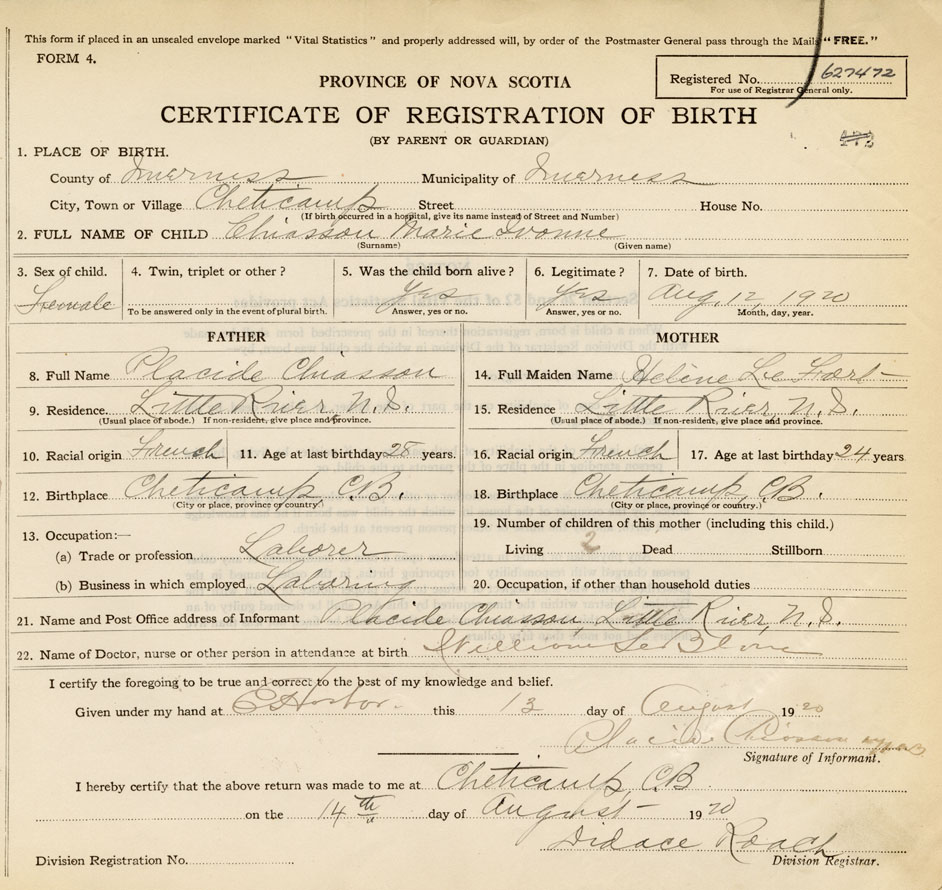 This form if placed in an unsealed envelope marked "Vital Statistics" and properly addressed will, by order of the Postmaster General pass through the Mails "FREE."
FORM 4.
Registered No. 627472
For use of Registrar General only.
PROVINCE OF NOVA SCOTIA
CERTIFICATE OF REGISTRATION OF BIRTH
(BY PARENT OR GUARDIAN)
1. PLACE OF BIRTH.
County of Inverness Municipality of Inverness
City, Town or Village Cheticamp Street House No.
(If birth occurred in a hospital, give its name instead of Street and Number)
2. FULL NAME OF CHILD Chiasson Marie Ivonne
(Surname) (Given name)
3. Sex of child. 4. Twin, triplet or other? 5. Was the child born alive? 6. Legitimate? 7. Date of birth.
Female yes yes Aug, 12, 1920
To be answered only in the event of plural birth. Answer, yes or no. Answer, yes or no. Month, day, year.
FATHER MOTHER
8. Full Name Placide Chiasson 14. Full Maiden Name Helène Le Fort
9. Residence. Little River, N.S. 15. Residence Little River, N.S.
(Usual place of abode.) If non-resident, give place and province. (Usual place of abode.) If non-resident, give place and province.
10. Racial origin French 11. Age at last birthday 28 years. 16. Racial origin French 17. Age at last birthday 24 years
12. Birthplace Cheticamp, C.B. 18. Birthplace Cheticamp, C.B.
(City or place, province or country.) (City or place, province or country.)
13. Occupation:— 19. Number of children of this mother (including this child.)
(a) Trade or profession Laborer Living 2 Dead Stillborn
(b) Business in which employed Laboring 20. Occupation, if other than household duties
21. Name and Post Office address of Informant Placide Chiasson, Little River, N.S.
22. Name of Doctor, nurse or other person in attendance at birth William Le Blanc
I certify the foregoing to be true and correct to the best of my knowledge and belief.
Given under my hand at E Harbor. this 13 day of August 1920
Placide Chiasson
Signature of Informant.
I hereby certify that the above return was made to me at Cheticamp, C.B
on the 14th day of August 1920
Didace Roach
Division Registration No. Division Registrar.